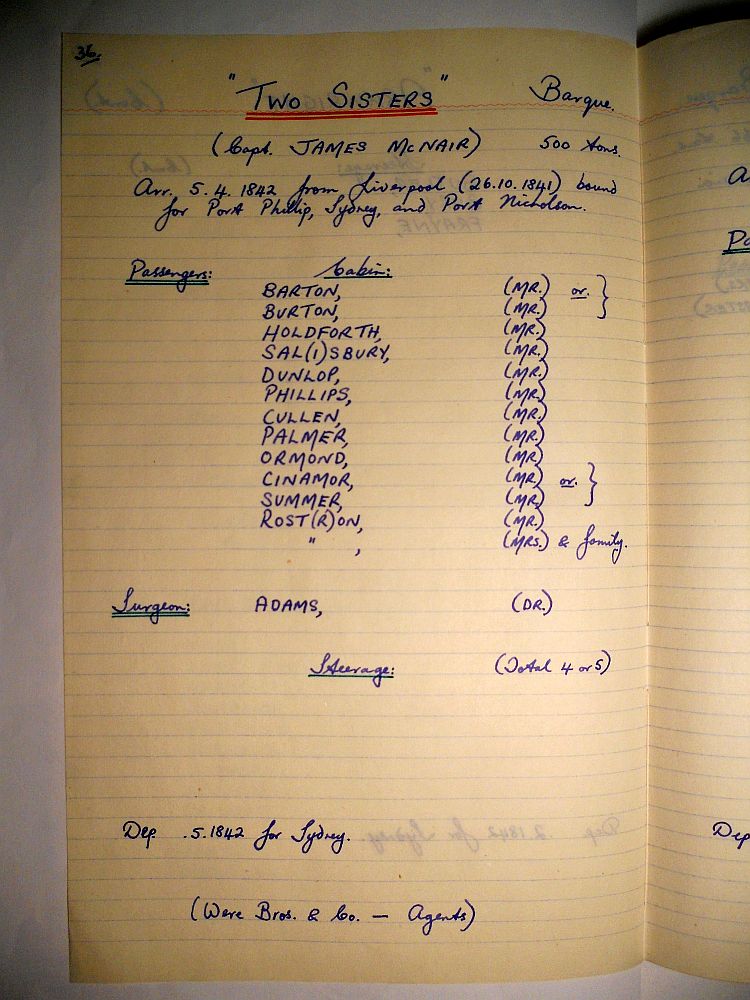 36.
"TWO SISTERS" Barque.
(Capt. JAMES McNAIR) 500 tons.
Arr. 5.4.1842 from Liverpool (26.10.1841) bound
for Port Phillip, Sydney, and Port Nicholson.
Passengers: Cabin:
BARTON, (MR.) or. }
BURTON, (MR.)
HOLDFORTH, (MR.)
SAL(I)SBURY, (MR.)
DUNLOP, (MR.)
PHILLIPS, (MR.)
CULLEN, (MR.)
PALMER, (MR.)
ORMOND, (MR.)
CINAMOR, (MR.) or. }
SUMMER, (MR.)
ROST(R)ON, (MR.)
" , (MRS.) & family.
Surgeon: ADAMS, (DR.)
Steerage: (Total 4 or 5)
Dep .5.1842 for Sydney.
(Were Bros. & Co. — Agents)
Dep